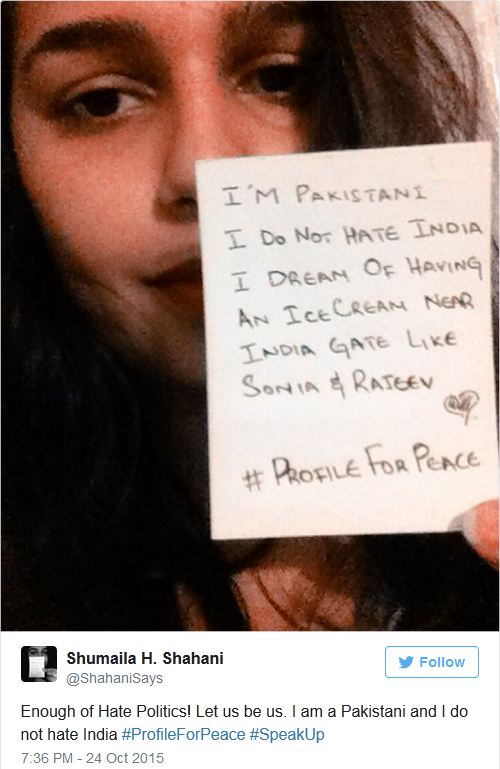 I'M PAKISTANI
I DO NOT HATE INDIA
I DREAM OF HAVING
AN ICECREAM NEAR
INDIA GATE LIKE
SONIA & RAJEEV
# PROFILE FOR PEACE
Shumaila H. Shahani
@ShahaniSays
Follow
Enough of Hate Politics! Let us be us. I am a Pakistani and I do
not hate India #ProfileForPeace #SpeakUp
7:36 PM - 24 Oct 2015